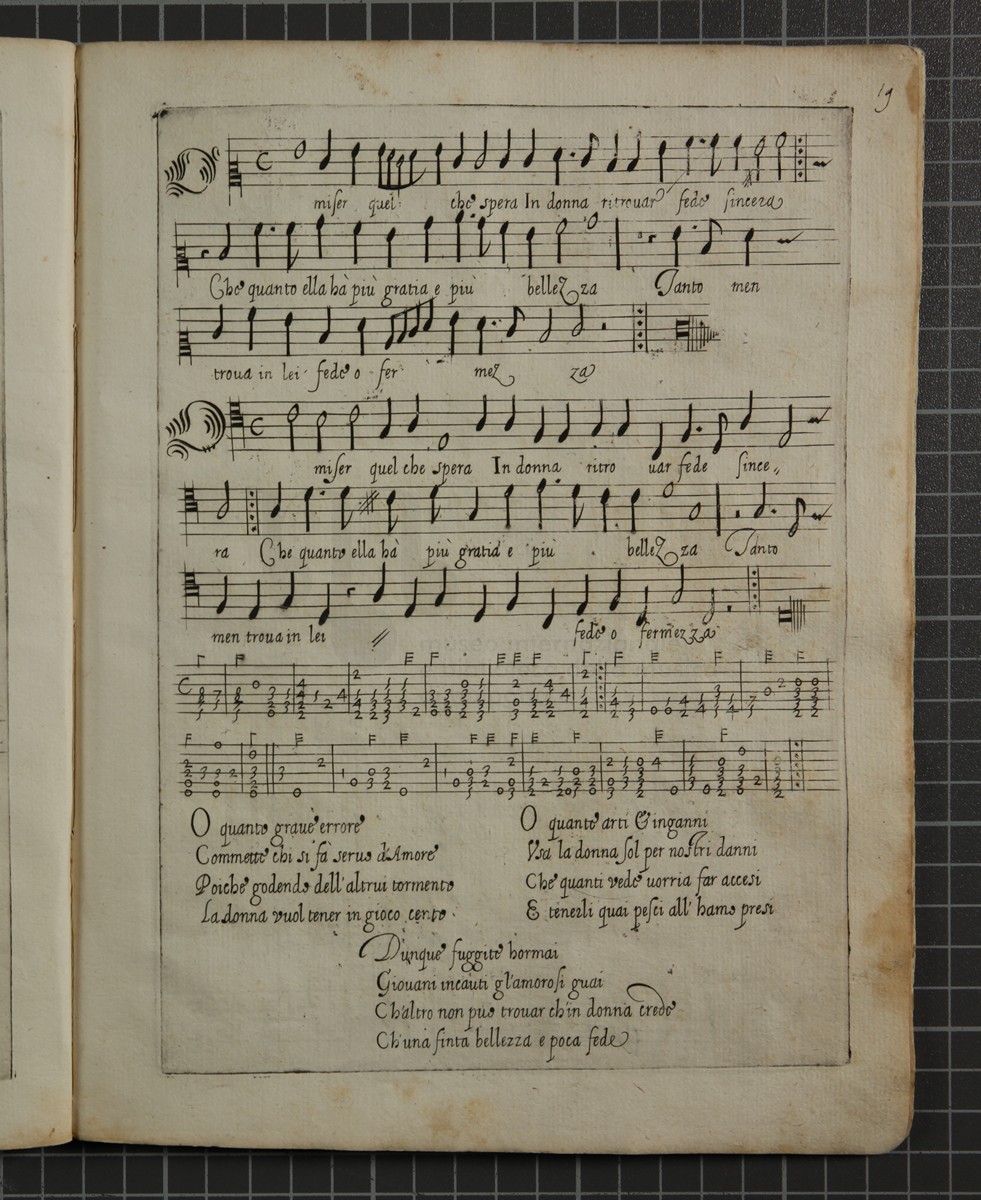 19
O miſer quel che spera In donna ritrouar fede ſincera
Che quanto ella hà più gratia e più belleZza Tanto men
troua in lei fede o fer mez za
O miſer quel che spera In donna ritro uar fede ſince„
ra Che quanto ella hà più gratia e più belleZza Tanto
men troua in lei // fede o fermezza
O quanto graue errore
Commette chi si fà seruo d'Amore
Poiche godendo dell'altrui tormento
La donna vuol tener in gioco cento
O quante arti & inganni
Vsa la donna ſol per nostri danni
Che quanti vede uorria far accesi
E tenerli quai peſci all' hamo presi
Dunque fuggite hormai
Giouani incauti gl'amoroſi guai
Ch'altro non può trouar ch'in donna crede
Ch'una finta bellezza e poca fede